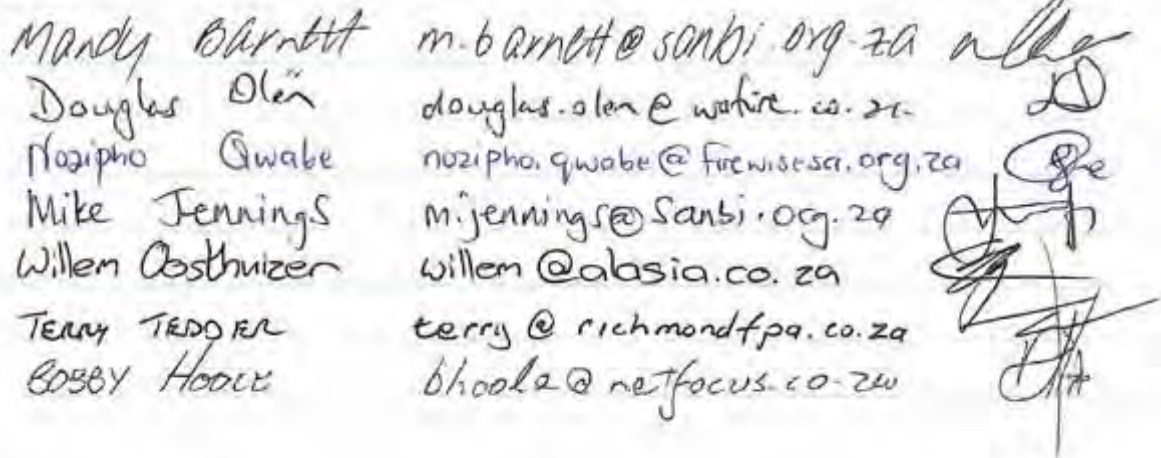 Mandy Barnett m.barnett@sanbi.org.za
Douglas Olën douglas.olen@wofire.co.za
Nozipho Qwabe nozipho.qwabe@firewisesa.org.za
Mike Jennings m.jennings@sanbi.org.za
Willem Oosthuizen willem@alasia.co.za
TERRY TEDDER terry@richmondfpa.co.za
BOBBY HOOLE bhoole@netfocus.co.zw